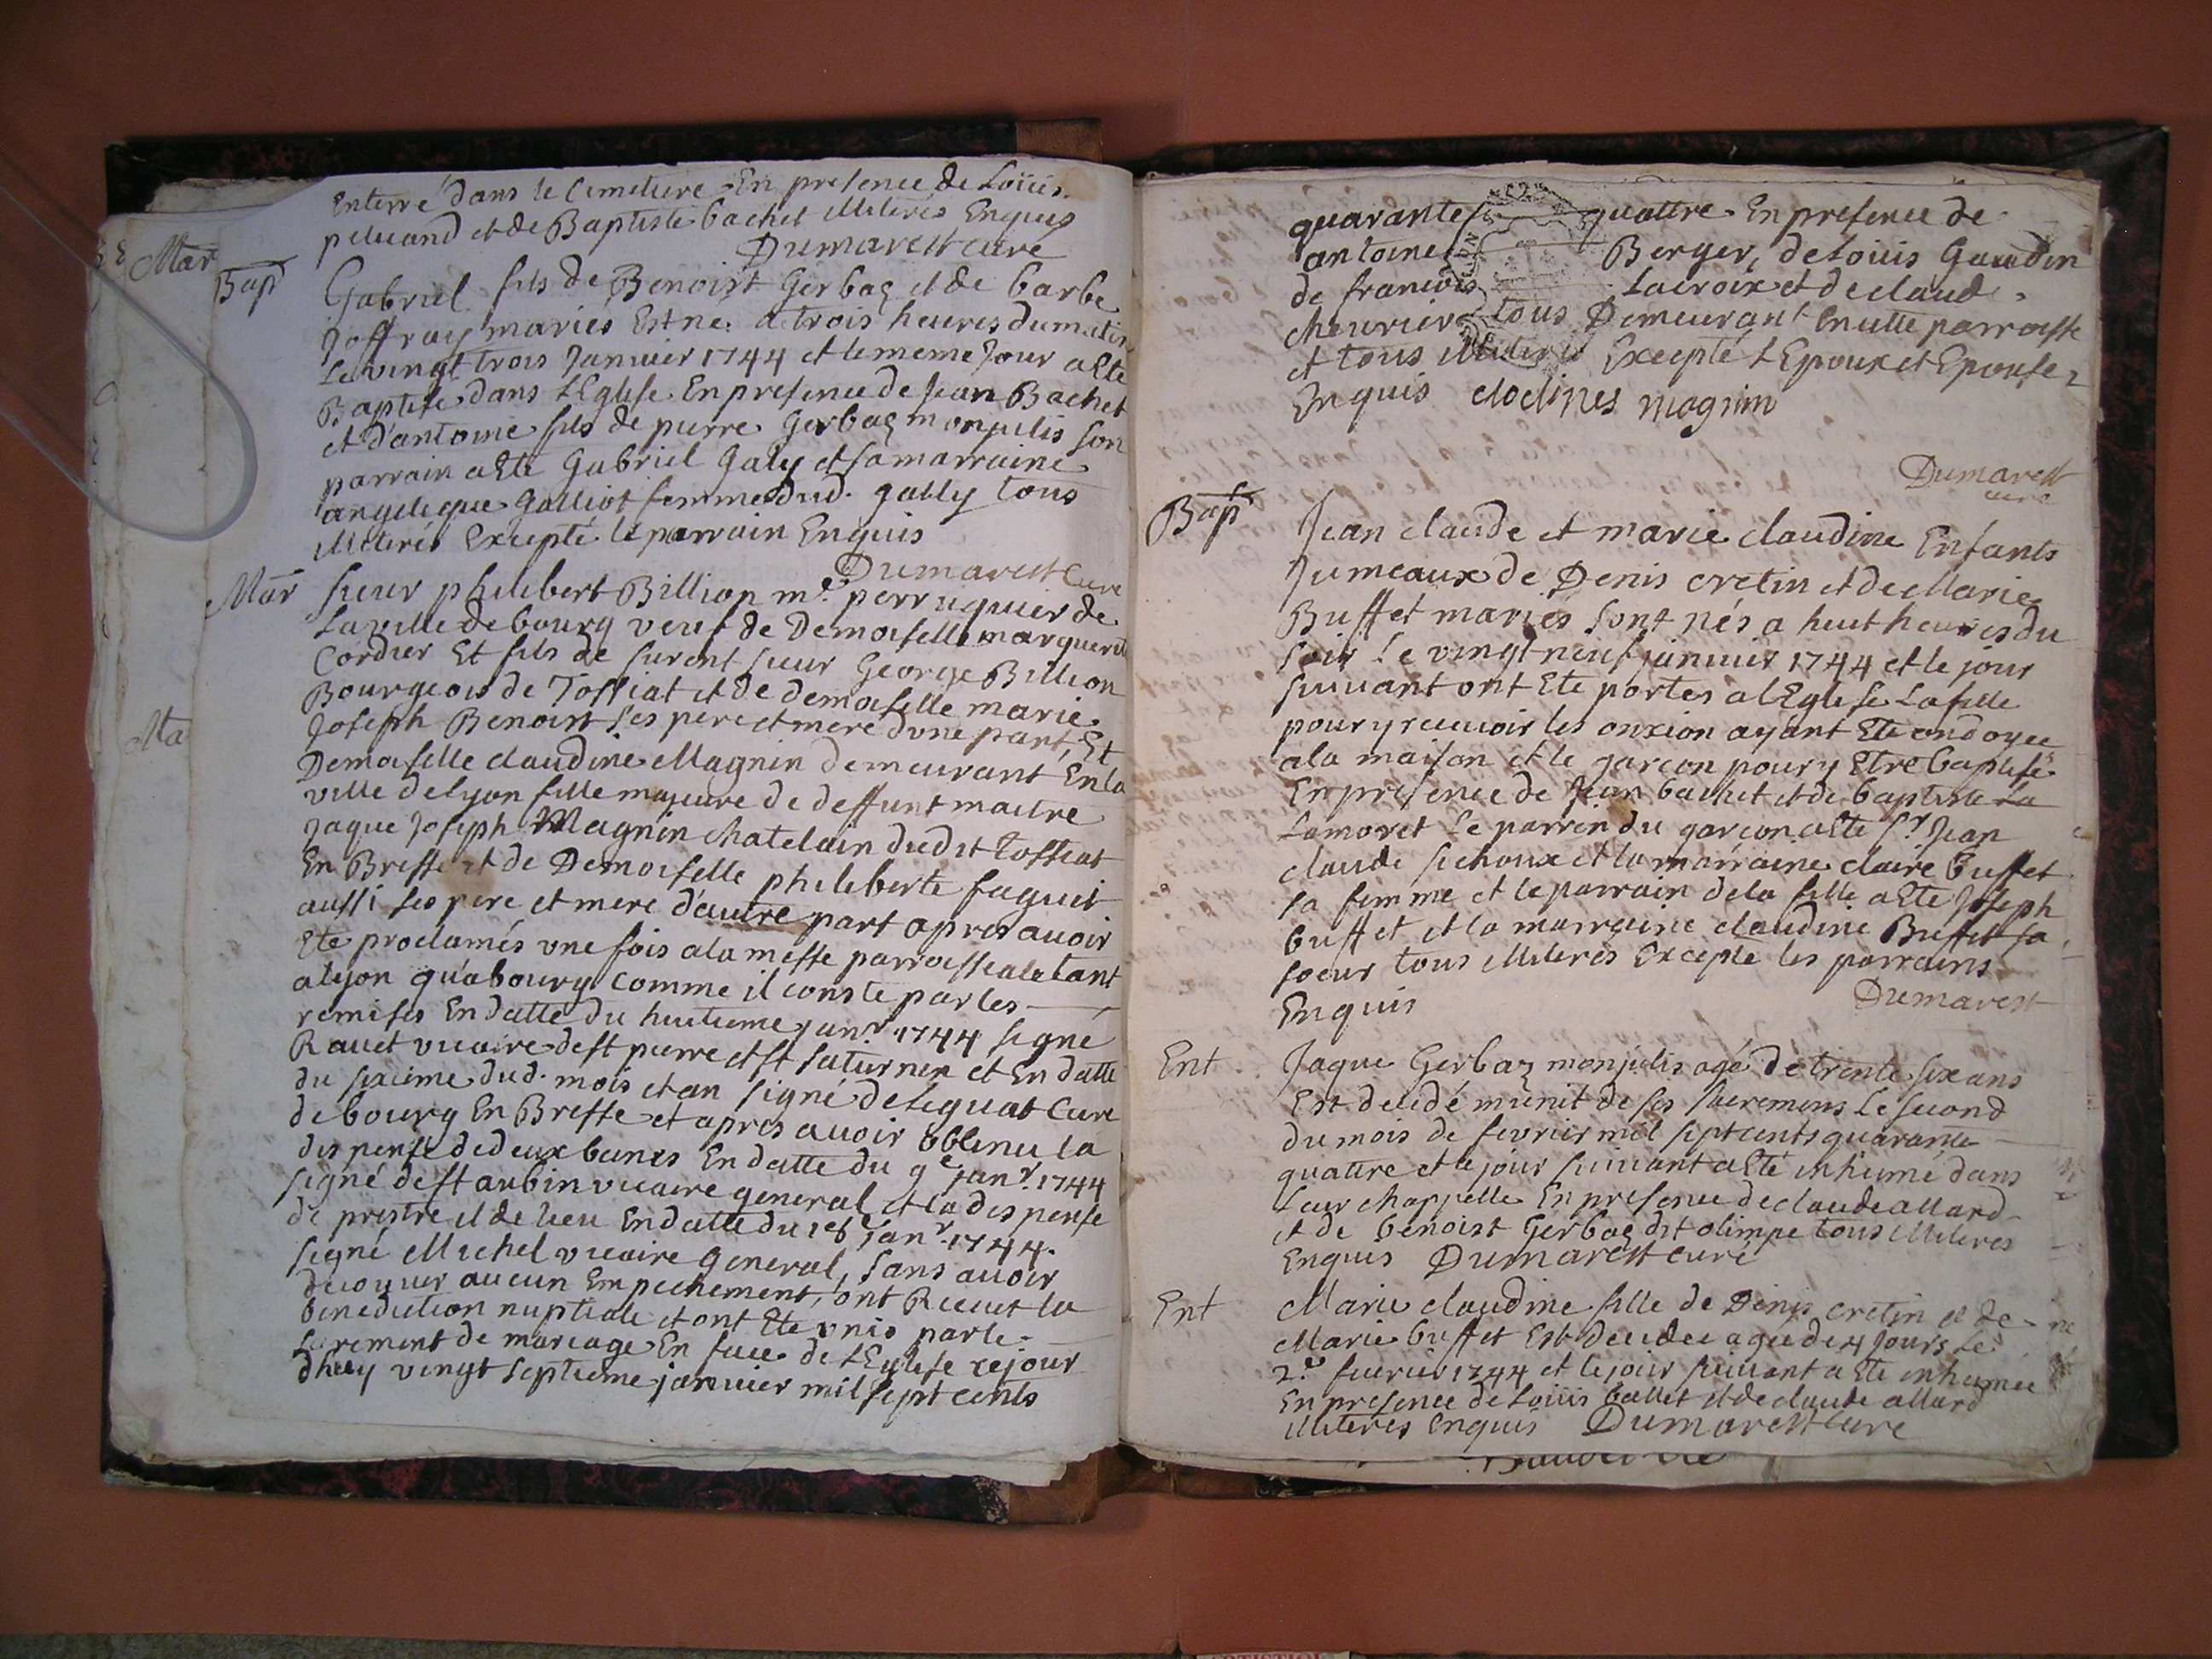 Enterré dans le Cimetiere En presence de Loüis
peluand et de Baptiste bachet illiterés Enquis
Dumarest curé
Mar
Bap
Gabriel fils de Benoist Gerbaz et de barbe
Joffray mariés Est né a trois heures du matin
Le vingt trois Janvier 1744 et le meme Jour a Eté
Baptisé dans L'Eglise En presence de Jean Bachet
et d'antoine fils de pierre Gerbaz monjulis son
parrain a Eté Gabriel Galy et sa marraine
angelique Galliot femme dud. gally tous
illiterés Excepté le parrain Enquis
Dumarest Curé
Mar
Sieur philibert Billion me. perruquier de
La ville de bourg veuf de Demoiselle marguerite
Cordier Et fils de furent sieur George Billion
Bourgeois de Tossiat et de demoiselle marie
Joseph Benoist ses pere et mere d'une part, Et
Ma
Demoiselle claudine Magnin demeurant En la
ville de lyon fille majeure de deffunt maitre
Jaque Joseph Magnin chatelain dudit Tossiat
En Bresse et de Demoiselle philiberte faguet
aussi ses pere et mere d'autre part apres avoir
Eté proclamés une fois a la messe parroissiale tant
a lyon qu'a bourg comme il conste par les
remises En datte du huitieme janr. 1744 signé
Ravet vicaire de st pierre et st saturnin et En datte
du sixieme dud. mois et an signé de Leguat Curé
de bourg En Bresse et apres avoir obtenu la
dispense de deux bancs En datte du 9e janr. 1744
signé de st aubin vicaire general et la dispense
de prestre et de lieu En datte du 18 janr. 1744.
signé Michel vicaire General, sans avoir
decouver aucun Empechement, ont Receut la
benediction nuptiale et ont Eté unis par le
Sacrement de mariage En face de L'Eglise ce jour
dhuy vingt septieme janvier mil sept cents
quarante quattre En presence de
antoine Berger, de Loüis Gaudin
de francois Lacroix et de claude
chevrier tous Demeurant En cette parroisse
et tous illiterés Excepté L'Epoux et Epouse
Enquis clodines magnin
Dumarest
curé
Bap
Jean claude et marie claudine Enfants
Jumeaux de Denis cretin et de Marie
Buffet mariés sont nés a huit heures du
soir Le vingt neuf janvier 1744 et le jour
suivant ont Eté portés a l'Eglise La fille
pour y recevoir les onxion ayant Eté ondoyée
a la maison et le garcon pour y Etre baptisé
En presence de Jean bachet et de baptiste La
Lamoret Le parrin du garcon a Eté sr. Jean
claude sichoux et la marraine claire Buffet
sa femme et le parrain de la fille a Eté Joseph
buffet et la marraine claudine Buffet sa
soeur tous illiterés Excepté les parrains
Enquis
Dumarest
Ent
Jaque Gerbaz monjulis agé de trente six ans
Est decedé munit de ses sacremens Le second
du mois de fevrier mil sept cents quarante
quattre et le jour suivant a Eté inhumé dans
Leur chappelle En presence de claude allard
et de benoist Gerbaz dit olimpe tous illiteres
Enquis Dumarest curé
Ent
Marie claudine fille de Denis cretin et de
Marie buffet Est decedée agée de 4 Jours Le
2e fevrier 1744 et le jour suivant a Eté inhumée
En presence de Loüis ballet et de claude allard
illiterés Enquis Dumarest curé